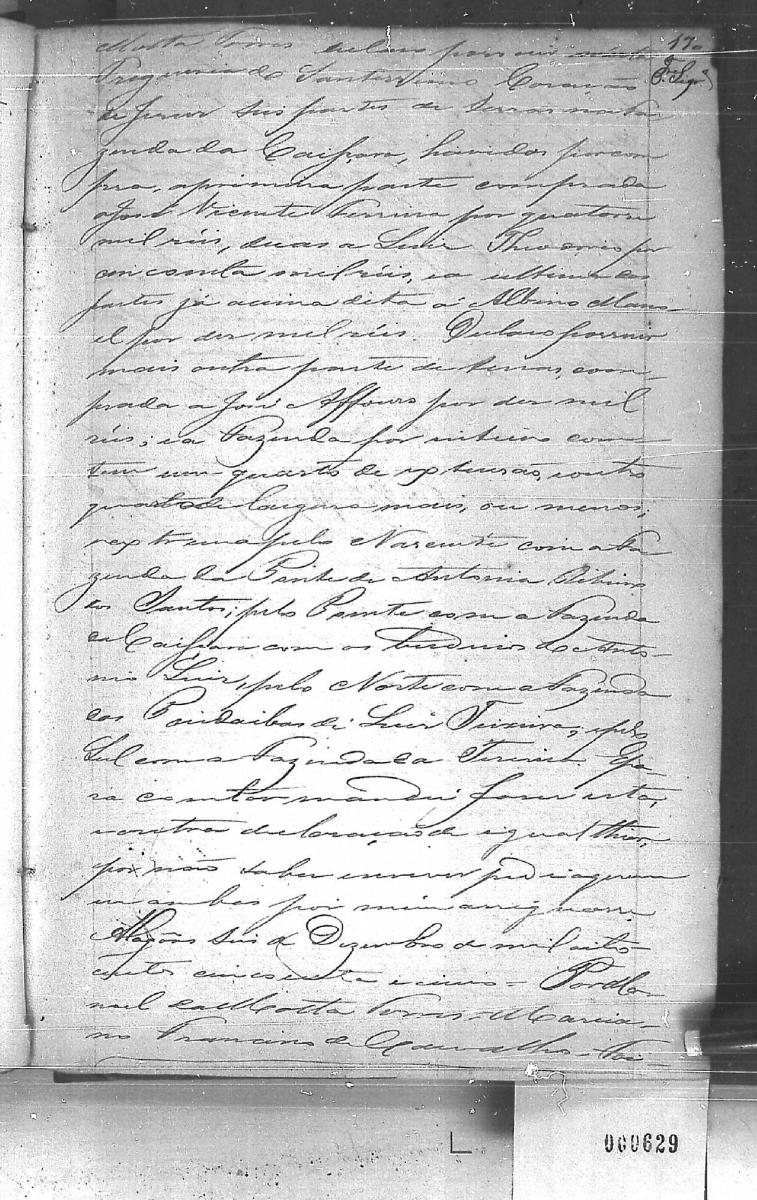 17
Motta Torres declaro possuir nesta
Freguesia do Santissimo Coração
de Jesus seis partes de terras na Fa
zenda da Caissara, havidas por com
pra, a primeira parte comprada
a José Vicente Ferreira por quatorze
mil réis, duas a Luiz Theodorio por
cincoenta mil réis, e a ultima das
partes já acima dita a Albino Mano
el por dez mil réis. Declaro possuir
mais outra parte de terras, com
prada a José Affonso por dez mil
réis; e a Fazenda por inteiro com
tem um quarto de extensão, e outro
quarto de largura mais, ou menos;
e extrema pelo Nascente com a Fa
zenda da Ponte de Antonia Ribeiro
dos Santos; pelo Poente com a Fazenda
da Caissara com os herdeiros de Anto-
nio Luis, pelo Norte com a Fazenda
das Pindaibas de Luis Teixeira, e pelo
Sul com a Fazenda da E pa-
ra constar mandei fazer esta,
e outra declaração de igual theor,
por não saber escrever pedi a quem
em ambas por mim assignasse.
Alagôas seis de Dezembro de mil oito
centos cincoenta e cinco = Por Ma
noel da Motta Torres = Marcia-
no Francisco de Carvalho = Foi
000629